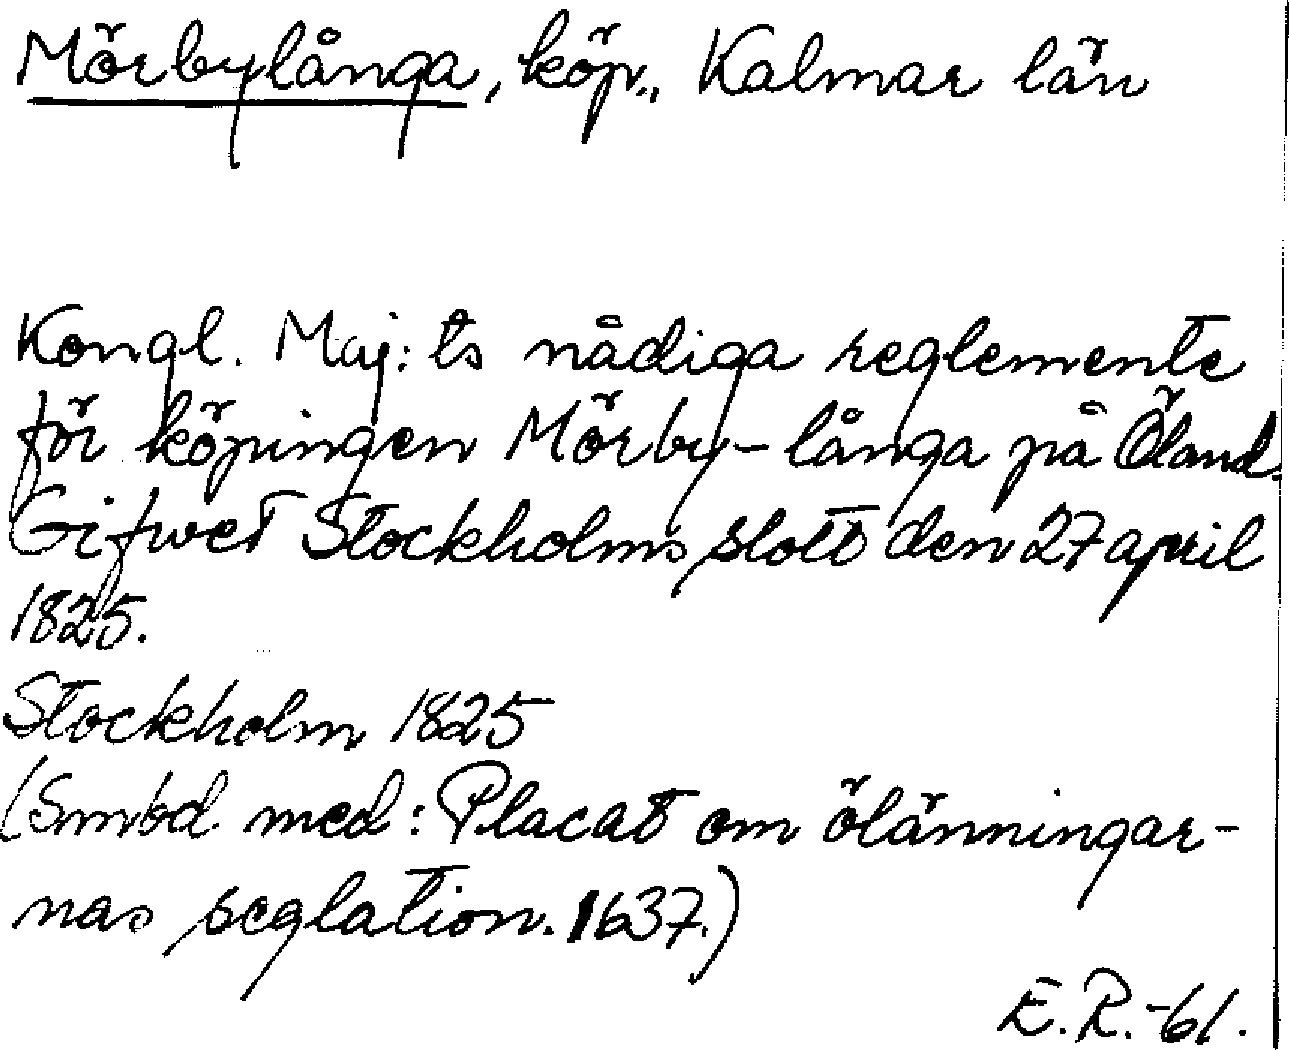 Mörbylånga, köp., Kalmar län
Kongl. Maj:ts nådiga reglemente
för köpingen Mörby-långa på Öland.
Gifwet Stockholms slott den 27 april
1825.
Stockholm 1825
(Smbd med: Placat om ölänningar-
nas seglation. 1637.)
E.R.-61.